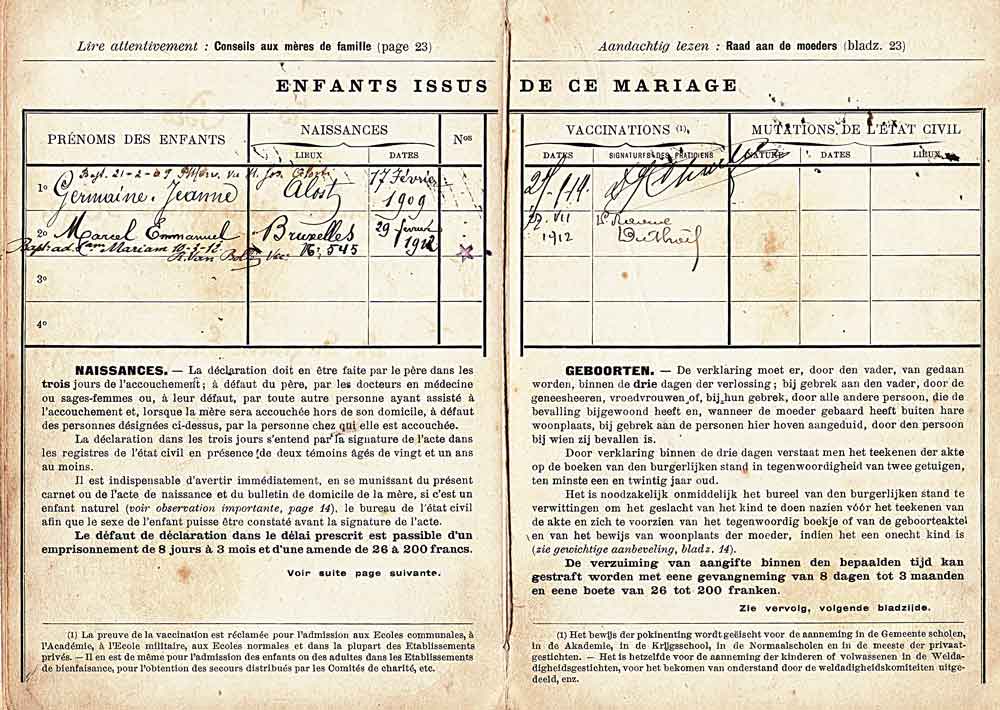 Lire attentivement : Conseils aux mères de famille (page 23)
Aandachtig lezen : Raad aan de moeders (bladz. 23)
ENFANTS ISSUS DE CE MARIAGE
PRÉNOMS DES ENFANTS
NAISSANCES
LIEUX
DATES
Nos
VACCINATIONS (1)
DATES
SIGNATURES DES PRATICIENS
MUTATIONS DE L'ÉTAT CIVIL
NATURE
DATES
LIEUX
Bapt. 21-2-09
1º Germaine. Jeanne
Alost
17 Février
1909
2º Marcel Emmanuel
Bruxelles
29 février
1912
27. VII
1912
Bapt. ad. Mariam 10-3-12
Nº: 545
3º
4º
NAISSANCES. — La déclaration doit en être faite par le père dans les
trois jours de l'accouchement ; à défaut du père, par les docteurs en médecine
ou sages-femmes ou, à leur défaut, par toute autre personne ayant assisté à
l'accouchement et, lorsque la mère sera accouchée hors de son domicile, à défaut
des personnes désignées ci-dessus, par la personne chez qui elle est accouchée.
La déclaration dans les trois jours s'entend par la signature de l'acte dans
les registres de l'état civil en présence de deux témoins âgés de vingt et un ans
au moins.
Il est indispensable d'avertir immédiatement, en se munissant du présent
carnet ou de l'acte de naissance et du bulletin de domicile de la mère, si c'est un
enfant naturel (voir observation importante, page 14), le bureau de l'état civil
afin que le sexe de l'enfant puisse être constaté avant la signature de l'acte.
Le défaut de déclaration dans le délai prescrit est passible d'un
emprisonnement de 8 jours à 3 mois et d'une amende de 26 à 200 francs.
Voir suite page suivante.
(1) La preuve de la vaccination est réclamée pour l'admission aux Ecoles communales, à
l'Académie, à l'Ecole militaire, aux Ecoles normales et dans la plupart des Etablissements
privés. — Il en est de même pour l'admission des enfants ou des adultes dans les Etablissements
de bienfaisance, pour l'obtention des secours distribués par les Comités de charité, etc.
GEBOORTEN. — De verklaring moet er, door den vader, van gedaan
worden, binnen de drie dagen der verlossing ; bij gebrek aan den vader, door de
geneesheeren, vroedvrouwen of, bij hun gebrek, door alle andere persoon, die de
bevalling bijgewoond heeft en, wanneer de moeder gebaard heeft buiten hare
woonplaats, bij gebrek aan de personen hier hoven aangeduid, door den persoon
bij wien zij bevallen is.
Door verklaring binnen de drie dagen verstaat men het teekenen der akte
op de boeken van den burgerlijken stand in tegenwoordigheid van twee getuigen,
ten minste een en twintig jaar oud.
Het is noodzakelijk onmiddelijk het bureel van den burgerlijken stand te
verwittingen om het geslacht van het kind te doen nazien vóór het teekenen van
de akte en zich te voorzien van het tegenwoordig boekje of van de geboorteaktel
en van het bewijs van woonplaats der moeder, indien het een onecht kind is
(zie gewichtige aanbeveling, bladz. 14).
De verzuiming van aangifte binnen den bepaalden tijd kan
gestraft worden met eene gevangneming van 8 dagen tot 3 maanden
en eene boete van 26 tot 200 franken.
Zie vervolg, volgende bladzijde.
(1) Het bewijs der pokinenting wordt geëischt voor de aanneming in de Gemeente scholen,
in de Akademie, in de Krijgsschool, in de Normaalscholen en in de meeste der privaat-
gestichten. — Het is hetzelfde voor de aanneming der kinderen of volwassenen in de Welda-
digheidsgestichten, voor het bekomen van onderstand door de weldadigheidskomiteiten uitge-
deeld, enz.